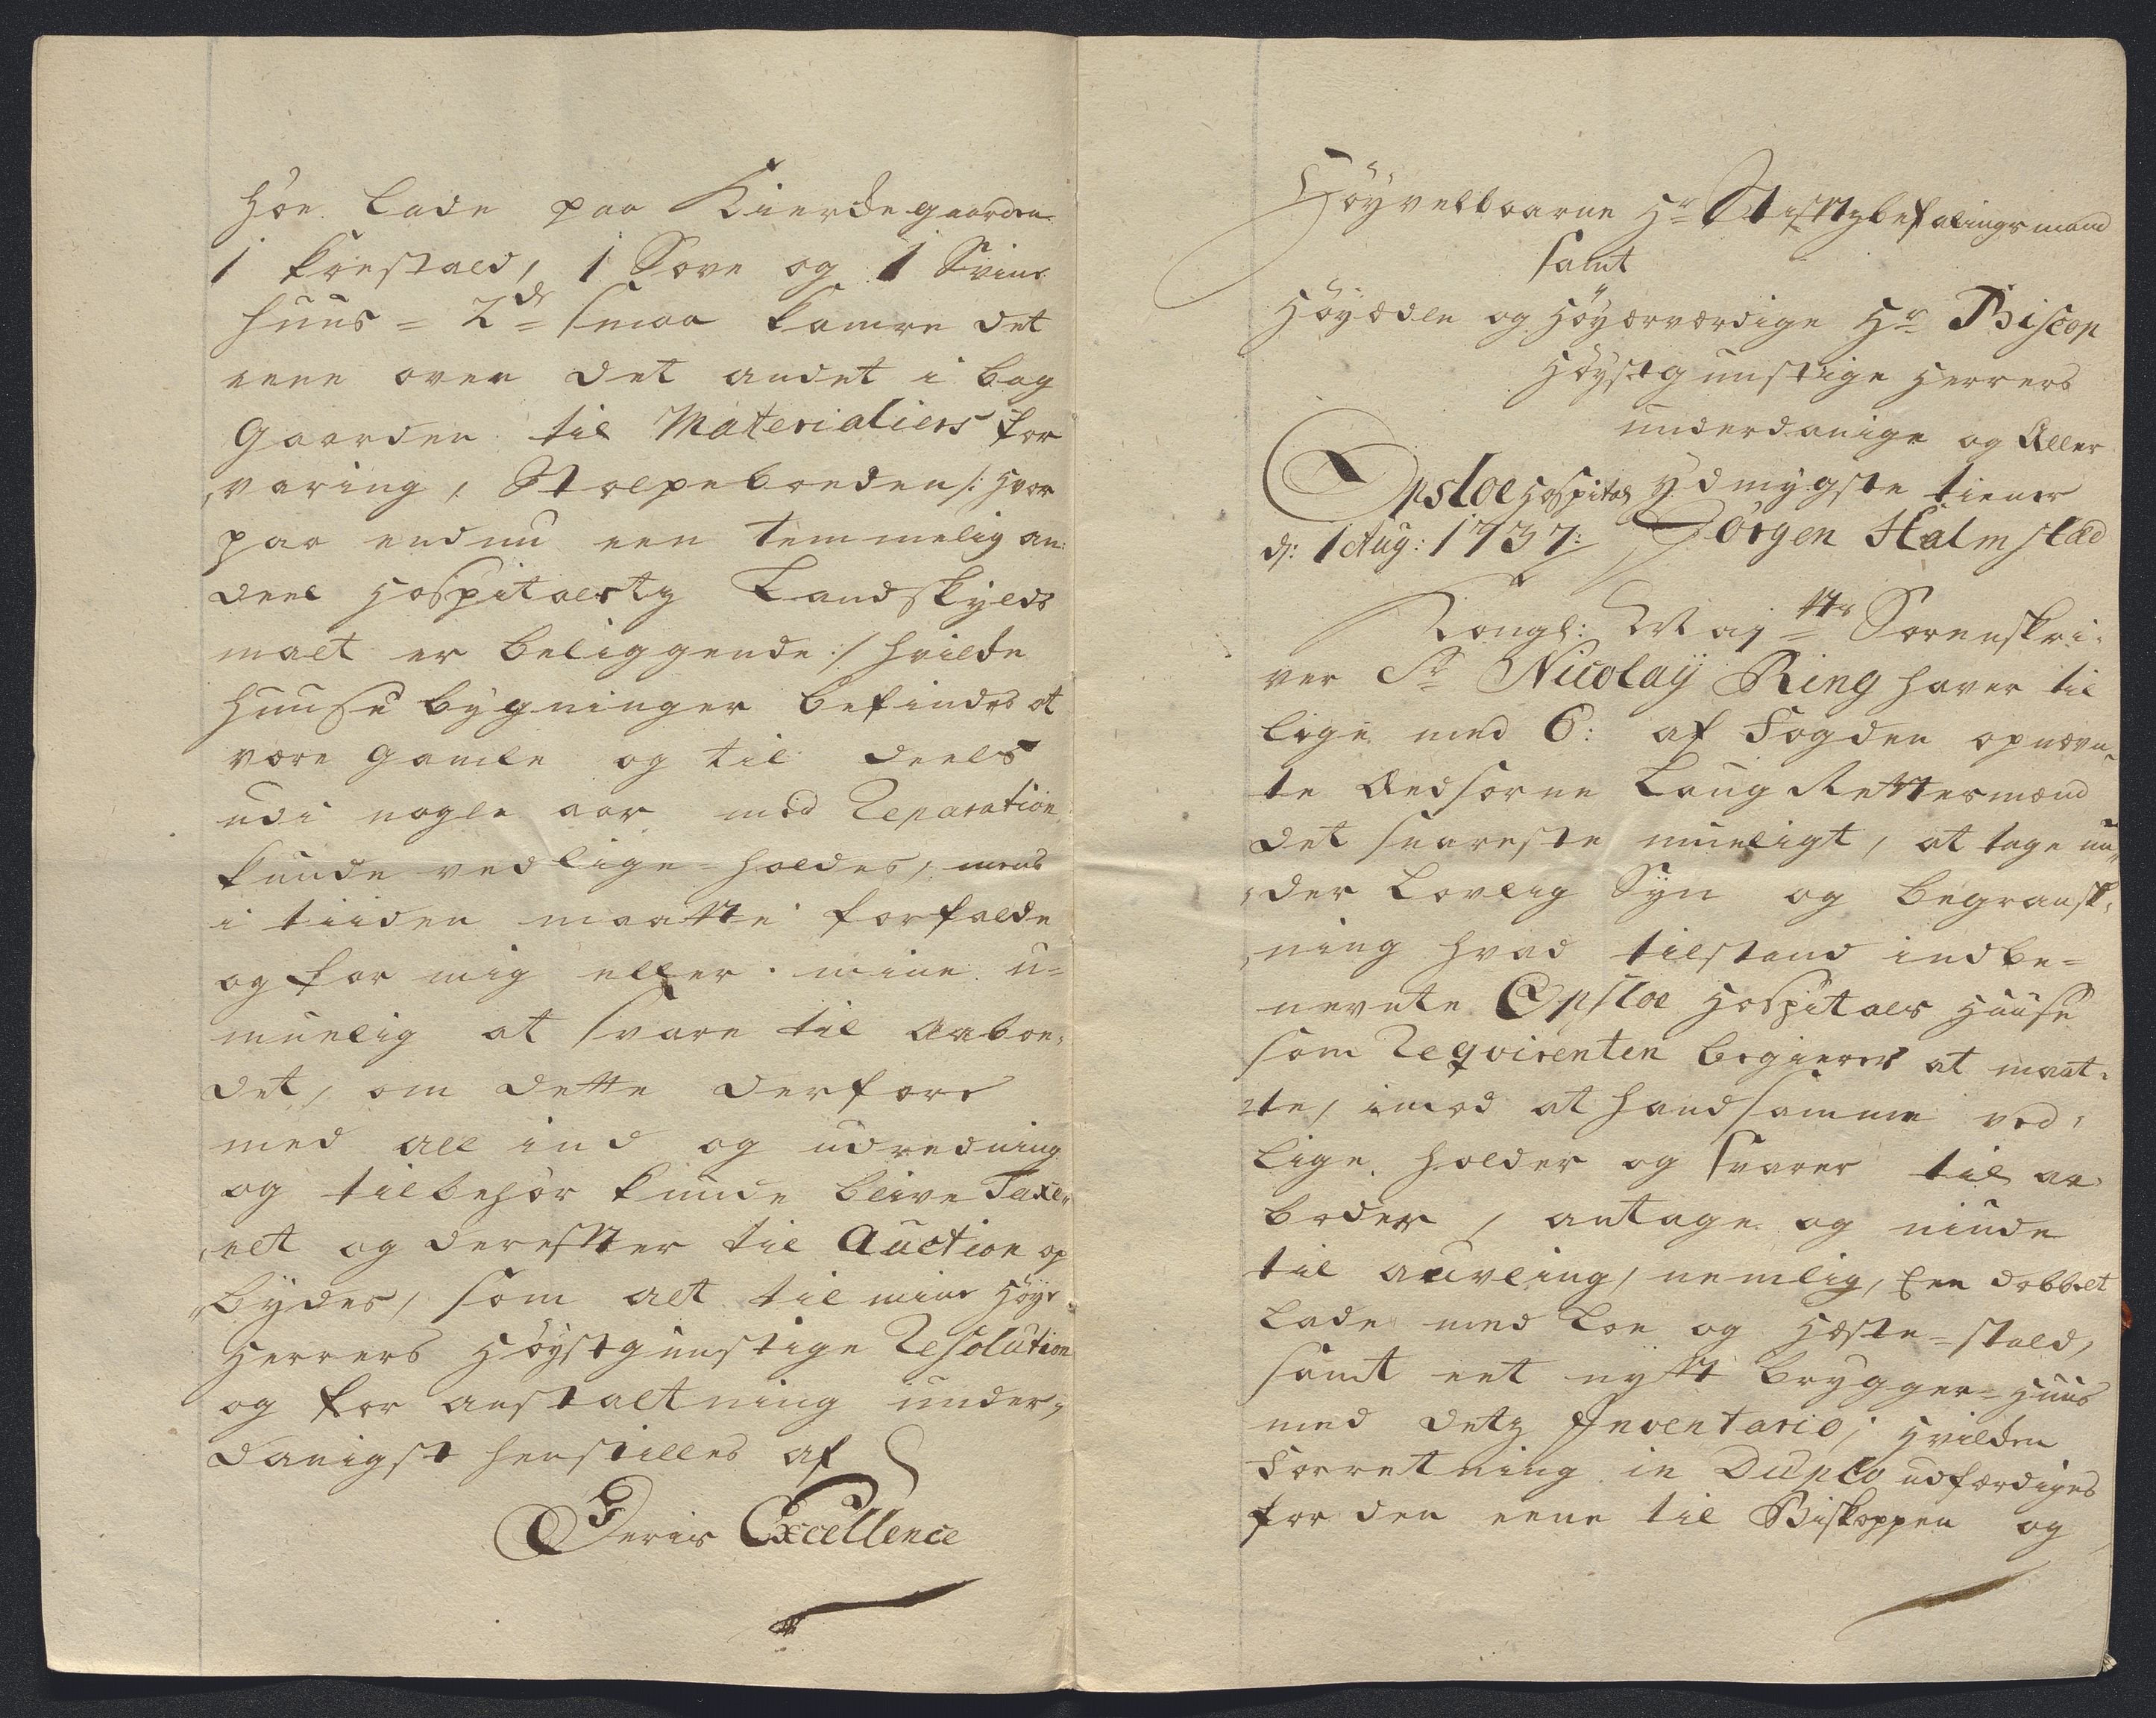 Høe Lade paa Kierdegaarden
1 Køestald, 1 Sove og 1 Svine
huus = 2de smaa kamre det
eene over det andet i bag
gaarden til Materialiers for
varing, Stolpeboeden /: hvor
paa endnu een temmelig an:
deel Hospitaletz Landskylds
malt er beliggende :/ hvilke
huuse bygninger befindes at
være gamle og til deels
udi nogle aar med Reparation
kunde vedlige-holdes, mens
i tiiden maatte forfalde
og for mig eller mine u=
muelig at svare til Aaboe,
det, om dette derfore
med all ind og udredning
og tilbehør kunde blive Taxe,,
,,ret og derefter til Auction op
,,bydes, som alt til mine Høye
Herrers Høystgunstige Resolution
og for anstaltning under,,
danigst henstilles af
Deris Excellence
Høyvelbaarne Hr Stiftzbefalingsmand
samt
Høyædle og Høyærværdige Hr Biscop
Høystgunstige Herrers
underdanige og Aller
Opsloe Hospital ydmygste tiener
d: 1 Aug: 1737: Jörgen Halmstæd
Kongl: Maj:tts Sorenskri,
ver Sr Nicolaÿ Ring haver til
lige med 6: af Fogden opnævn,,
te Eedsorne Laug Rettesmænd
det snareste mueligt, at tage un,,
,,der Lovlig Syn og begransk,
,,ning hvad tilstand indbe=
nevnte Opsloe Hospitals Huuse
som Reqvirenten begierer at maat,
te, imod at hand samme ved,
lige holder og svarer til aa
boder, antage og niude
til auvling, nemlig, Een dobbelt
Lade med Loe og Hæste=stald,
samt eet nytt brygger=Huus
med detz Inventario; hvilken
Forretning in Duplo udfærdiges
for den eene til Biskoppen og